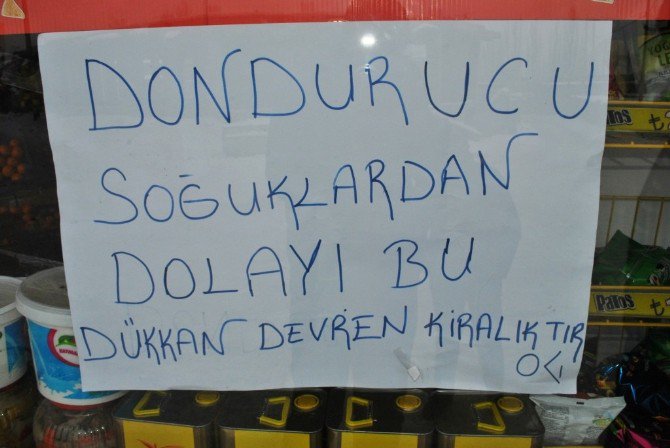 DONDURUCU
SOĞUKLARDAN
DOLAYI BU
DÜKKAN DEVREN KİRALIKTIR
Patos
Patos